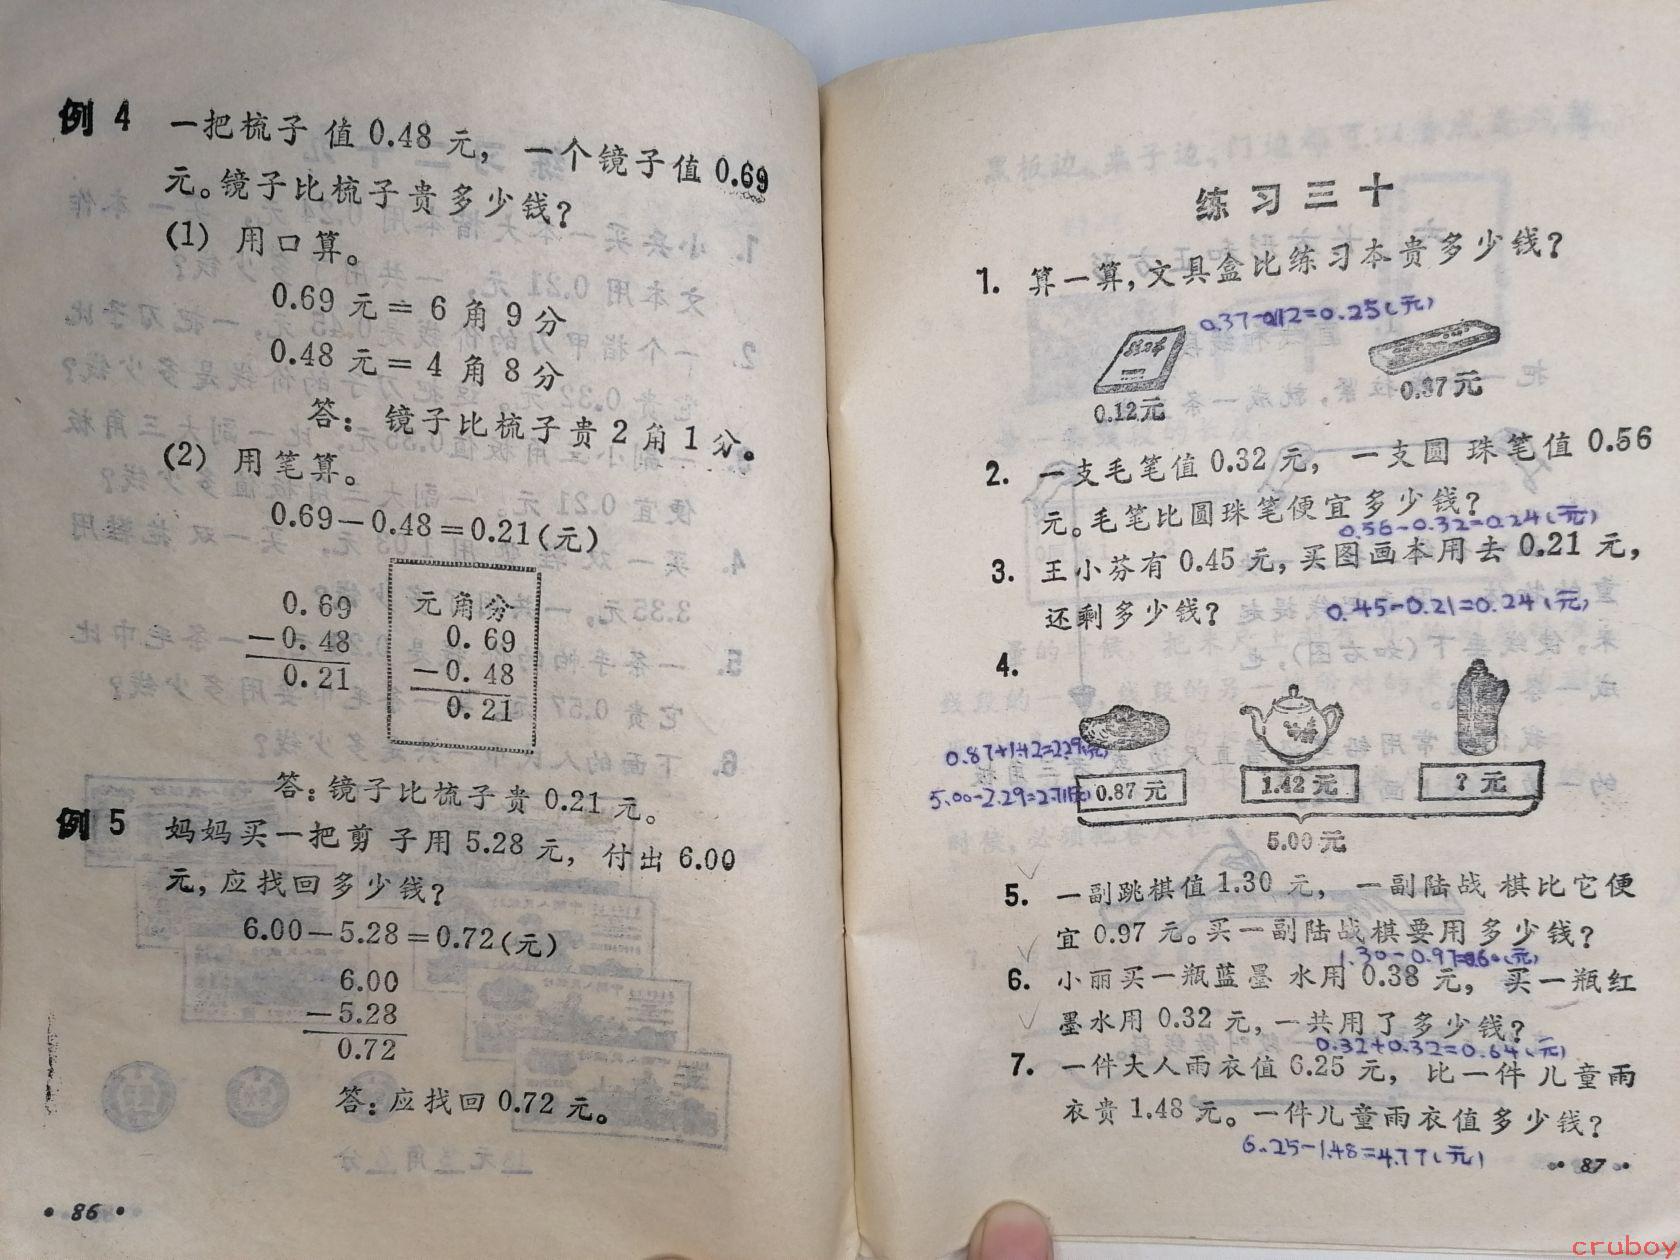 例 4 一把梳子值0.48元，一个镜子值0.69
元。镜子比梳子贵多少钱？
(1) 用口算。
0.69元=6角9分
0.48元=4角8分
答：镜子比梳子贵2角1分。
(2) 用笔算。
0.69－0.48＝0.21(元)
元角分
0.69 0.69
－0.48 －0.48
0.21 0.21
答：镜子比梳子贵0.21元。
例 5 妈妈买一把剪子用5.28元，付出6.00
元，应找回多少钱？
6.00－5.28＝0.72(元)
6.00
－5.28
0.72
答：应找回0.72元。
• 86 •
练习三十
1. 算一算，文具盒比练习本贵多少钱？
0.37-0.12=0.25(元)
0.12元 0.37元
2. 一支毛笔值0.32元，一支圆珠笔值0.56
元。毛笔比圆珠笔便宜多少钱？
0.56-0.32=0.24(元)
3. 王小芬有0.45元，买图画本用去0.21元，
还剩多少钱？ 0.45-0.21=0.24(元)
4.
5.00-2.29=2.71(元)
0.87元 1.42元 ？元
5.00元
5. 一副跳棋值1.30元，一副陆战棋比它便
宜0.97元。买一副陆战棋要用多少钱？
6. 小丽买一瓶蓝墨水用0.38元，买一瓶红
墨水用0.32元，一共用了多少钱？
0.32+0.32=0.64(元)
7. 一件大人雨衣值6.25元，比一件儿童雨
衣贵1.48元。一件儿童雨衣值多少钱？
6.25-1.48=4.77(元)
• 87 •
cruboy